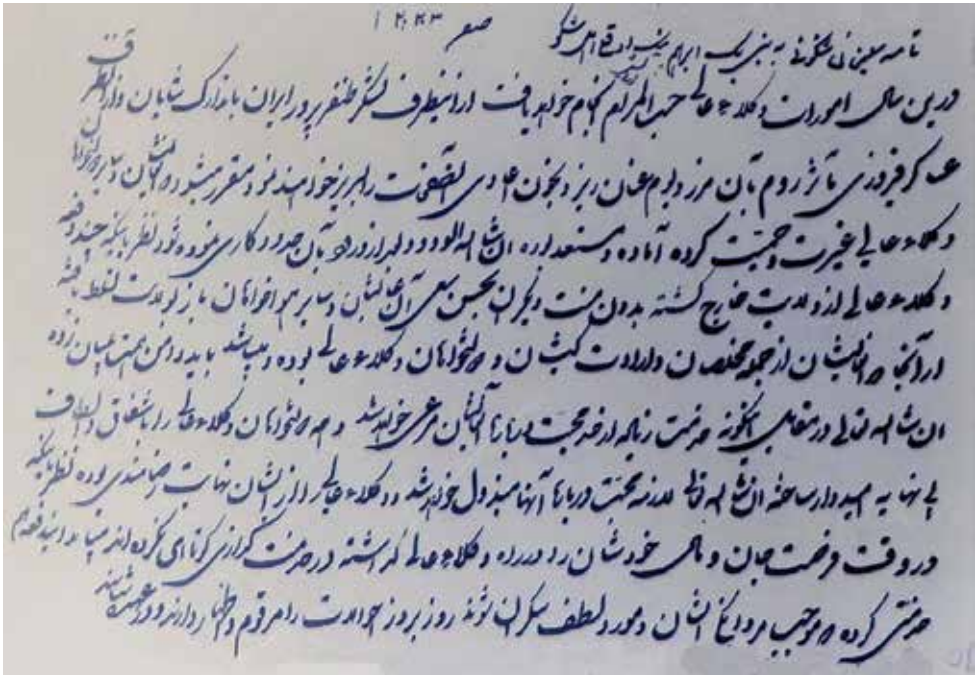 صفر ۱۲۲۳
نامه معین نی شکونی به نبی بیک ابراهیم
درین سال امورات وکلاء عالی حسب المرام انجام خواهد یافت و ازینطرف لشکر ظفر پرور ایران با تدارک شایان و از آن طرف
عساکر فیروزی مآثر روم بآن مرز و بوم عنان ریز و بخون اعادی آن صفحات را لبریز خواهند نمود مقرر میشود
وکلاء عالی غیرت و حمیت کرده آماده و مستعد ان شاء الله کاری نموده شود نظر باینکه چند دفعه
وکلاء عالی از ولایت خارج گشته بدون منت دیگران بحسن سعی آن عالیشان و سایر هواخواهان باز بولایت تسلط یافته
از آنجا که ایشان از جمله مخلصان و ارادت کیشان و هواخواهان وکلاء عالی بوده و میباشد باید دامن همت بمیان زده
ان شاء الله تعالی در مقابل اینگونه خدمت زیاده از حد محبت درباره ایشان مرعی خواهد شد و همه هواخواهان وکلاء عالی را باشفاق و الطاف
بی نهایه امیدوار ساخته ان شاء الله تعالی لازمه محبت درباره آنها مبذول خواهد شد و وکلاء عالی را از ایشان نهایت رضامندی بوده نظر باینکه
در وقت فرصت جان و مال خودشان را در راه وکلاء عالی گذاشته در خدمت گزاری کوتاهی نکرده اند
خدمتی کرده که موجب ایشان و مورد لطف بیکران شوند روز بروز حوادث را مرقوم و اظهار دارند و در عهده شناسند